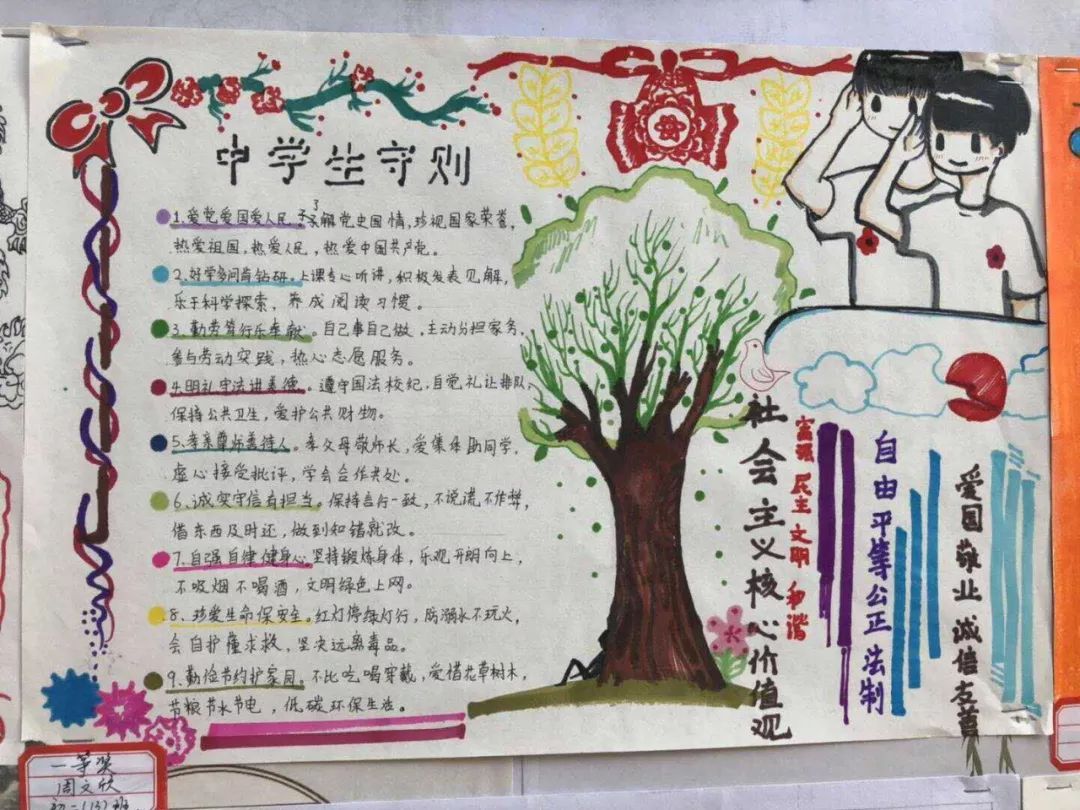 中学生守则
1.爱党爱国爱人民。了解党史国情,珍视国家荣誉,
热爱祖国,热爱人民,热爱中国共产党。
2.好学多问肯钻研。上课专心听讲,积极发表见解,
乐于科学探索,养成阅读习惯。
3.勤劳笃行乐奉献。自己事自己做,主动分担家务,
参与劳动实践,热心志愿服务。
4.明礼守法讲美德。遵守国法校纪,自觉礼让排队,
保持公共卫生,爱护公共财物。
5.孝亲尊师善待人。孝父母敬师长,爱集体助同学,
虚心接受批评,学会合作共处。
6.诚实守信有担当。保持言行一致,不说谎不作弊,
借东西及时还,做到知错就改。
7.自强自律健身心。坚持锻炼身体,乐观开朗向上,
不吸烟不喝酒,文明绿色上网。
8.珍爱生命保安全。红灯停绿灯行,防溺水不玩火,
会自护懂求救,坚决远离毒品。
9.勤俭节约护家园。不比吃喝穿戴,爱惜花草树木,
节粮节水节电,低碳环保生活。
社会主义核心价值观
富强 民主 文明 和谐
自由平等公正法制
爱国敬业诚信友善
一等奖
周文欣